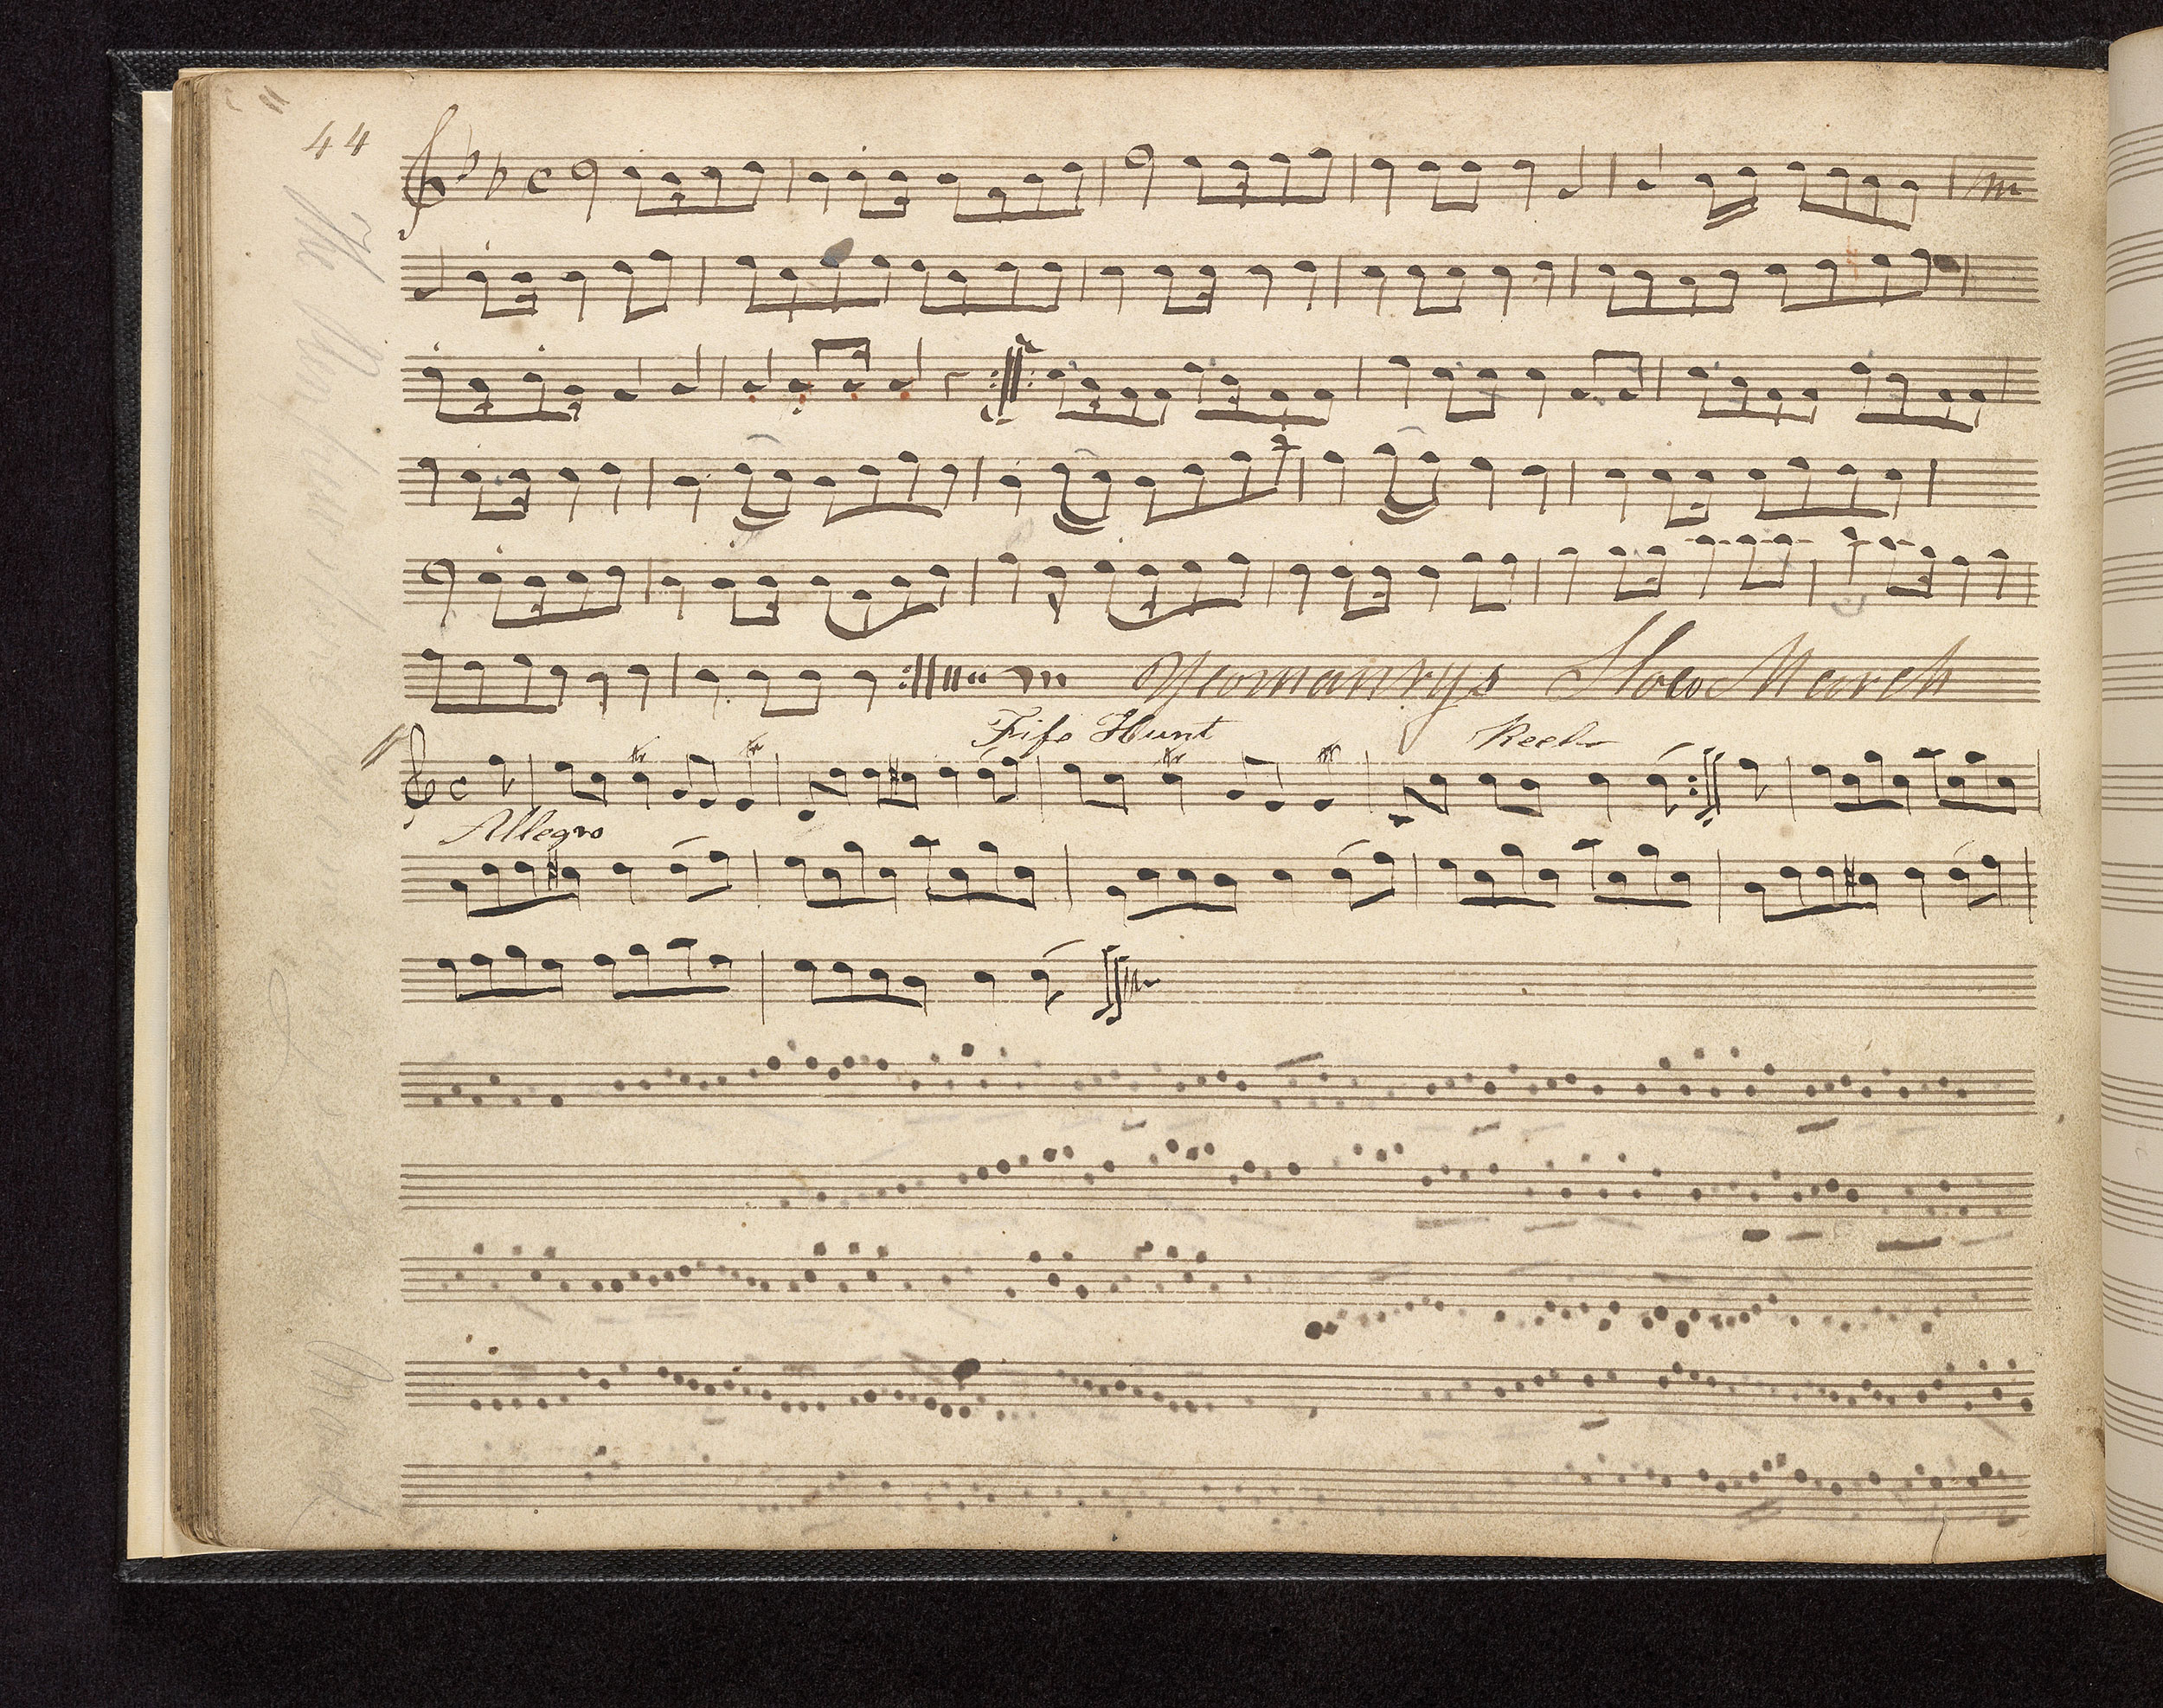 44
Yeomanrys Slow March
Fife Hunt Reel
Allegro
The